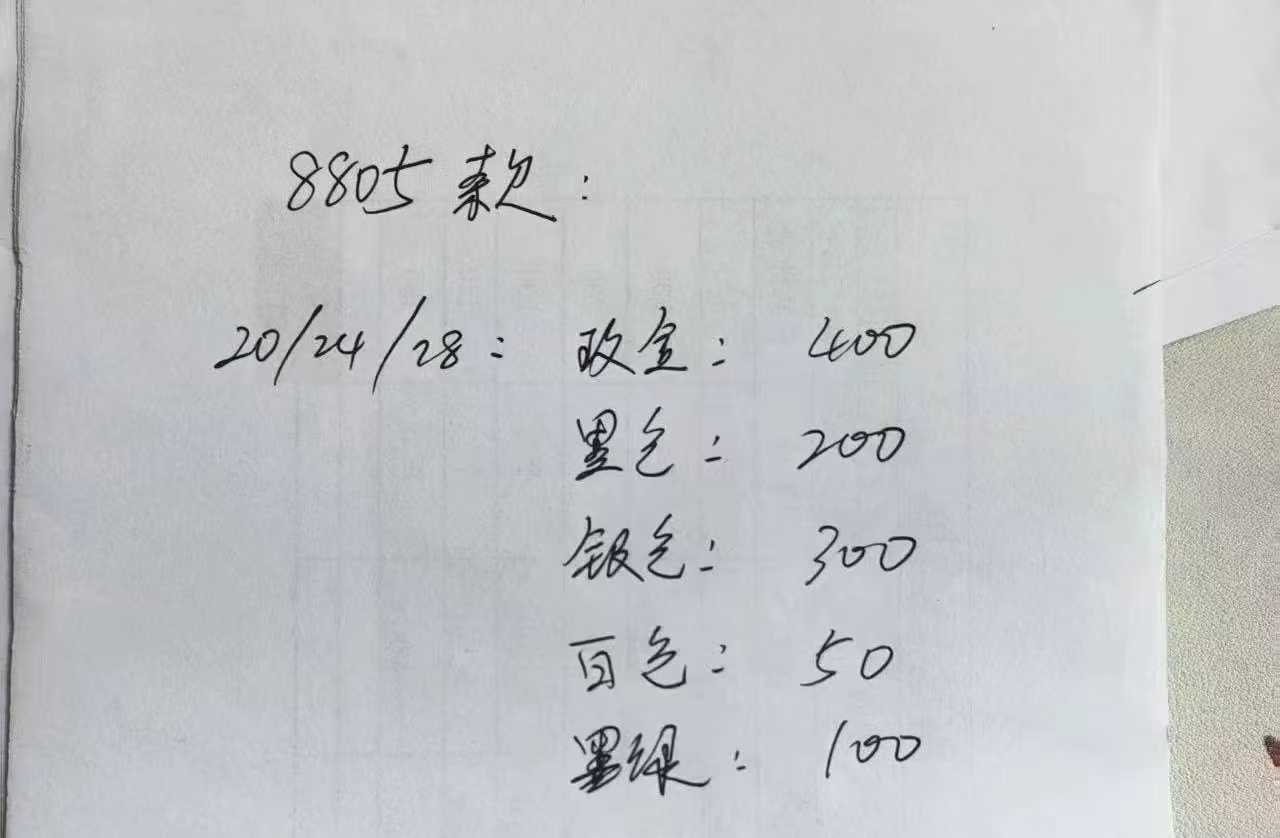 8805款:
20/24/28: 玫金: 400
黑色: 200
银色: 300
白色: 50
墨绿: 100